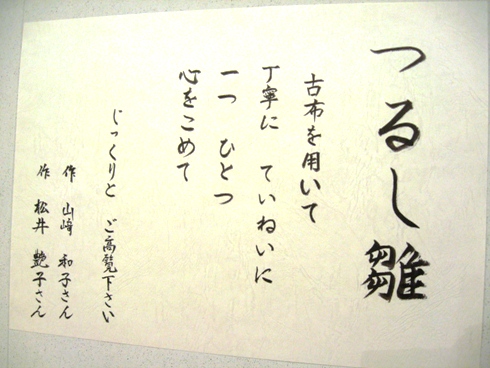 つるし雛
古布を用いて
丁寧に ていねいに
一つ ひとつ
心をこめて
じっくりと ご高覧下さい
作 山崎 和子さん
作 松井 艶子さん